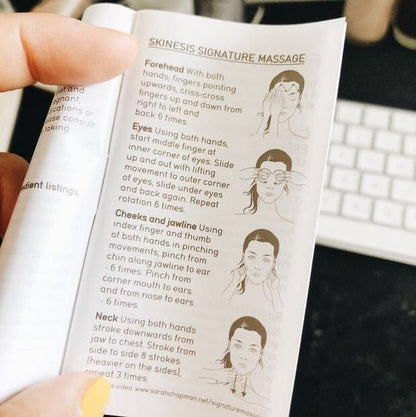 ef and
gnant,
ications or
ase consult
aking
edient listings,
SKINESIS SIGNATURE MASSAGE
Forehead With both
hands, fingers pointing
upwards, criss-cross
fingers up and down from
right to left and
back 6 times
Eyes Using both hands,
start middle finger at
inner corner of eyes. Slide
up and out with lifting
movement to outer corner
of eyes, slide under eyes
and back again. Repeat
rotation 6 times.
Cheeks and jawline Using
index finger and thumb
of both hands in pinching
movements, pinch from
chin along jawline to ear
- 6 times. Pinch from
corner mouth to ears
and from nose to ears
- 6 times
Neck Using both hands
stroke downwards from
jaw to chest. Stroke from
side to side 8 strokes
(heavier on the sides),
repeat 3 times
video www.sarahchapman.net/signaturemass